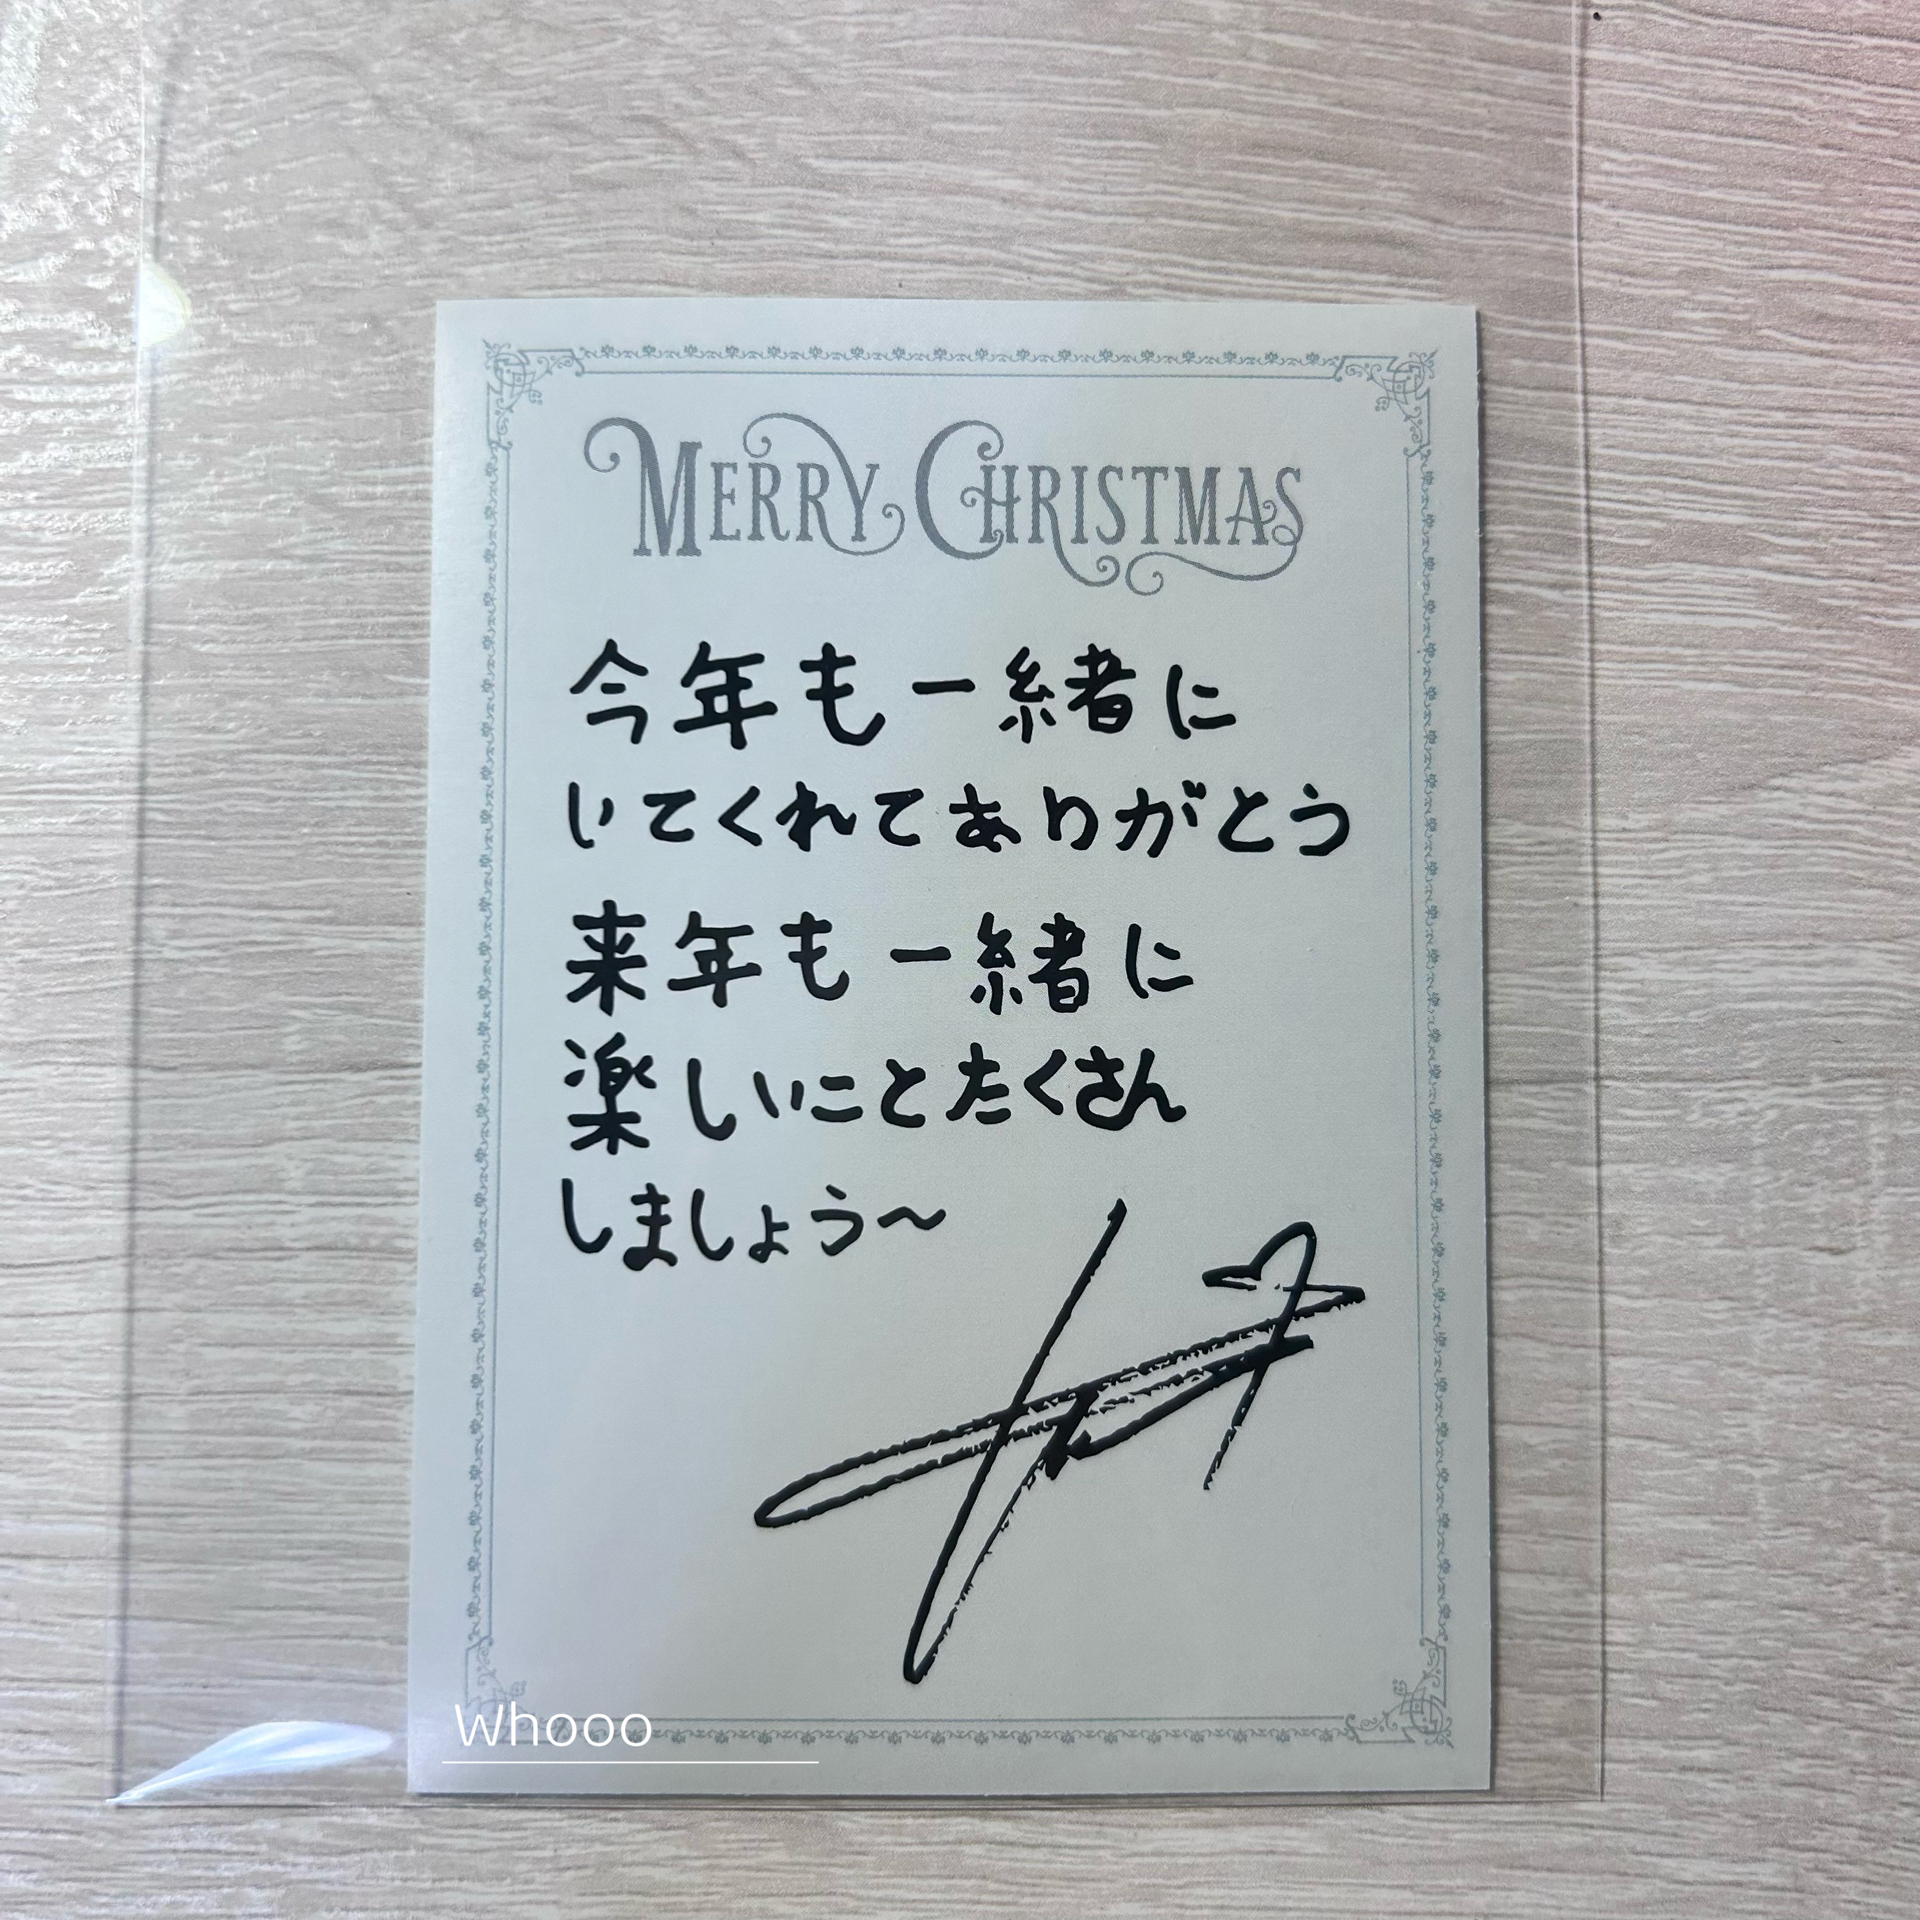 MERRY CHRISTMAS
今年も一緒に
いてくれてありがとう
来年も一緒に
楽しいことたくさん
しましょう〜
Whooo